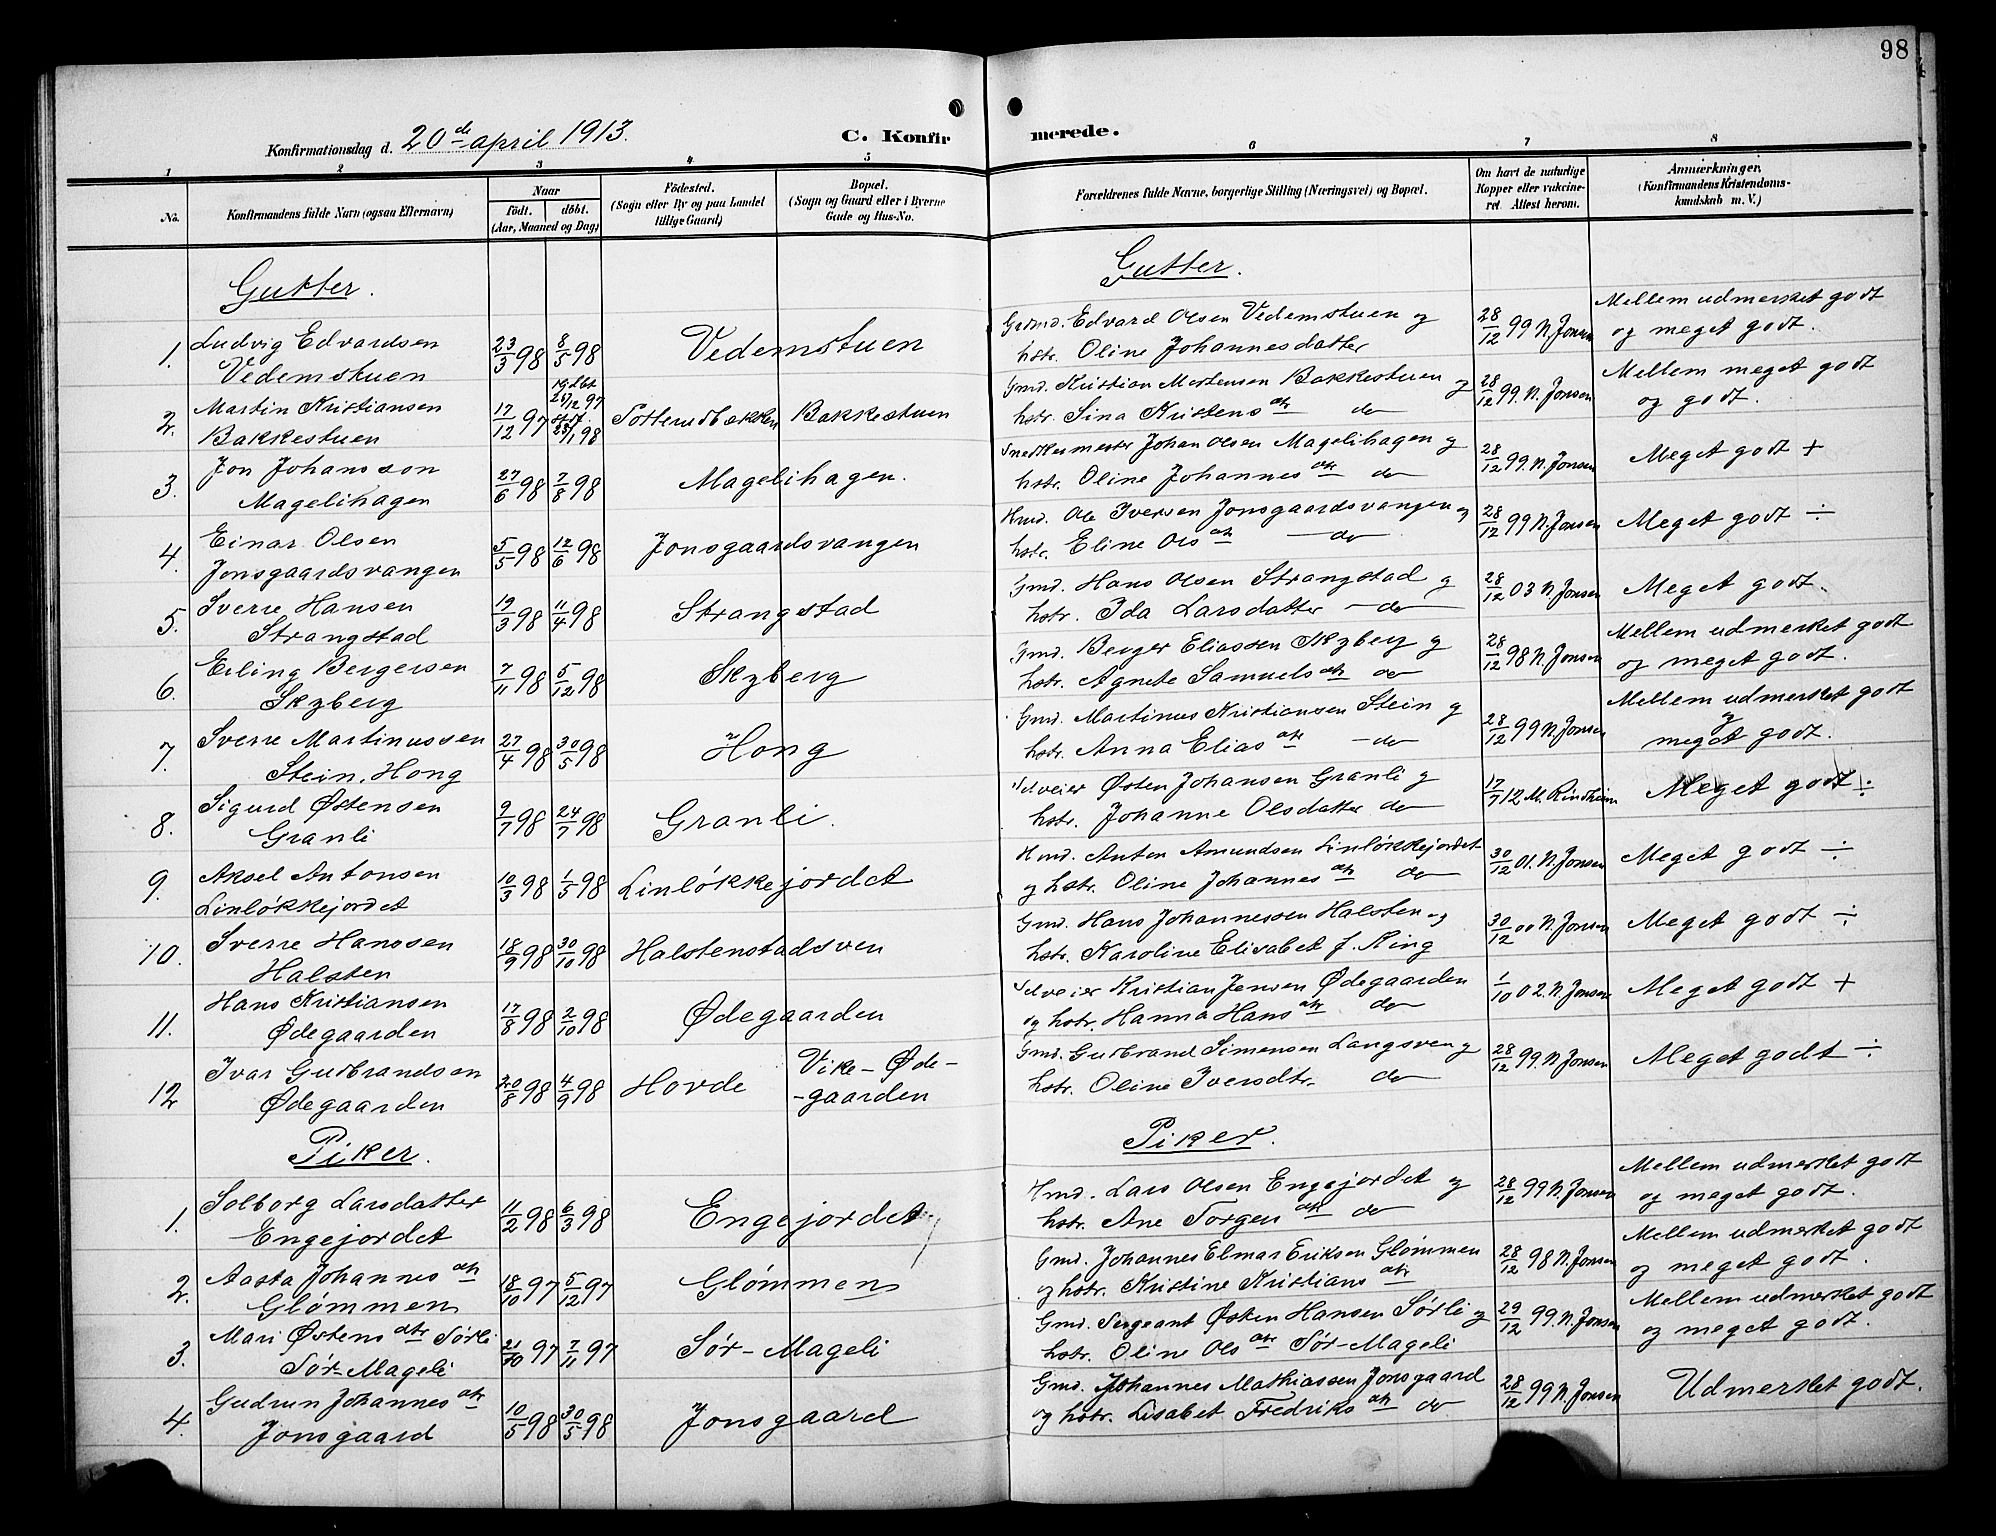 98
Konfirmationsdag d. 20de april 1913.
C. Konfirmerede.
1 2 3 4 5 6 7 8
No.
Konfirmandens fulde Navn (ogsaa Efternavn)
Naar
födt. döbt.
(Aar, Maaned og Dag)
Födested.
(Sogn eller By og paa Landet
tillige Gaard)
Bopæl.
(Sogn og Gaard eller i Byerne
Gade og Hus-No.
Forældrenes fulde Navne, borgerlige Stilling (Næringsvei) og Bopæl.
Om havt de naturlige
Kopper eller vakcine-
ret Attest herom.
Anmærkninger.
(Konfirmandens Kristendoms-
kundskab m. V.)
Gutter.
Gutter.
1. Ludvig Edvardsen
Vedemstuen
23/3 98 8/5 98 Vedemstuen
Gaardmd. Edvard Olsen Vedemstuen og
hstr. Oline Johannesdatter
28/12 99 N. Jonsen
Mellem udmerket godt
og meget godt.
2. Martin Kristiansen
Bakkestuen
17/12 97 26/12 97
23/1 98
Sotterudbækken Bakkestuen
Gmd. Kristian Mortensen Bakkestuen og
hstr. Sina Kristensdtr do
28/12 99. N. Jonsen
Mellem meget godt
og godt.
3. Jon Johansson
Magelihagen
27/6 98 7/8 98 Magelihagen.
Snedkermester Johan Olsen Magelihagen og
hstr. Oline Johannesdtr do
28/12 99. N. Jonsen
Meget godt +
4. Einar Olsen
Jonsgaardsvangen
5/5 98 12/6 98 Jonsgaardsvangen
Hmd. Ole Iversen Jonsgaardsvangen og
hstr. Eline Olsdtr do
28/12 99 N. Jonsen
Meget godt ÷
5. Sverre Hansen
Strangstad
19/3 98 11/4 98 Strangstad
Gmd. Hans Olsen Strangstad og
hstr. Ida Larsdatter do
28/12 03 N. Jonsen
Meget godt.
6. Erling Bergersen
Skyberg
7/11 98 5/12 98 Skyberg
Gmd. Berger Eliassen Skyberg og
hstr. Agnete Samuelsdtr do
28/12 98 N. Jonsen
Mellem udmerket godt
og meget godt.
7. Sverre Martinussen
Stein, Hong
27/4 98 30/5 98 Hong
Gmd. Martinus Kristiansen Stein og
hstr. Anna Eliasdtr do
28/12 99 N. Jonsen
Mellem udmerket godt
og
meget godt.
8. Sigurd Østensen
Granli
9/7 98 24/7 98 Granli.
Selveier Østen Johansen Granli og
hstr. Johanne Olsdatter do
17/7 12 M. Rindheim
Meget godt ÷
9. Aksel Antonsen
Linløkkejordet
10/3 98 1/5 98 Linløkkejordet
Hmd. Anton Amundsen Linløkkejordet
og hstr. Oline Johannesdtr do
30/12 01. N. Jonsen
Meget godt ÷
10. Sverre Hanssen
Halsten
18/9 98 30/10 98 Halstenstadsven
Gmd. Hans Johannessen Halsten og
hstr. Karoline Elisabet f. Ring
30/12 00 N. Jonsen
Meget godt ÷
11. Hans Kristiansen
Ødegaarden
17/8 98 2/10 98 Ødegaarden
Selveier Kristian Jensen Ødegaarden
og hstr. Hanna Hansdtr do
1/10 02. N. Jonsen
Meget godt +
12 Ivar Gudbrandsen
Ødegaarden
20/8 98 4/9 98 Hovde Vike-Øde-
-gaarden
Gmd. Gudbrand Simensen Langsven og
hstr. Oline Iversdtr. do
28/12 99. N. Jonsen
Meget godt ÷
Piker.
Piker.
1. Solborg Larsdatter
Engejordet
11/2 98 6/3 98 Engejordet
Hmd. Lars Olsen Engejordet og
hstr. Ane Torgersdtr do
28/12 99 N. Jonsen
Mellem udmerket godt
og meget godt.
2. Aasta Johannesdtr
Glømmen
18/10 97 5/12 97 Glømmen
Gmd. Johannes Elmar Eriksen Glømmen
og hstr. Kristine Kristiansdtr
28/12 98 N. Jonsen
Mellem udmerket godt
og meget godt.
3. Mari Østensdtr Sørli
Sør-Mageli
21/10 97 7/11 97 Sør-Mageli
Gmd. Sergeant Østen Hansen Sørli og
hstr. Oline Olsdtr Sør-Mageli
29/12 99. N. Jonsen
Mellem udmerket godt
og meget godt.
4. Gudrun Johannesdtr
Jonsgaard
10/5 98 30/5 98 Jonsgaard
Gmd. Johannes Mathiassen Jonsgaard
og hstr. Lisabet Fredriksdtr do
28/12 99 N. Jonsen
Udmerket godt.